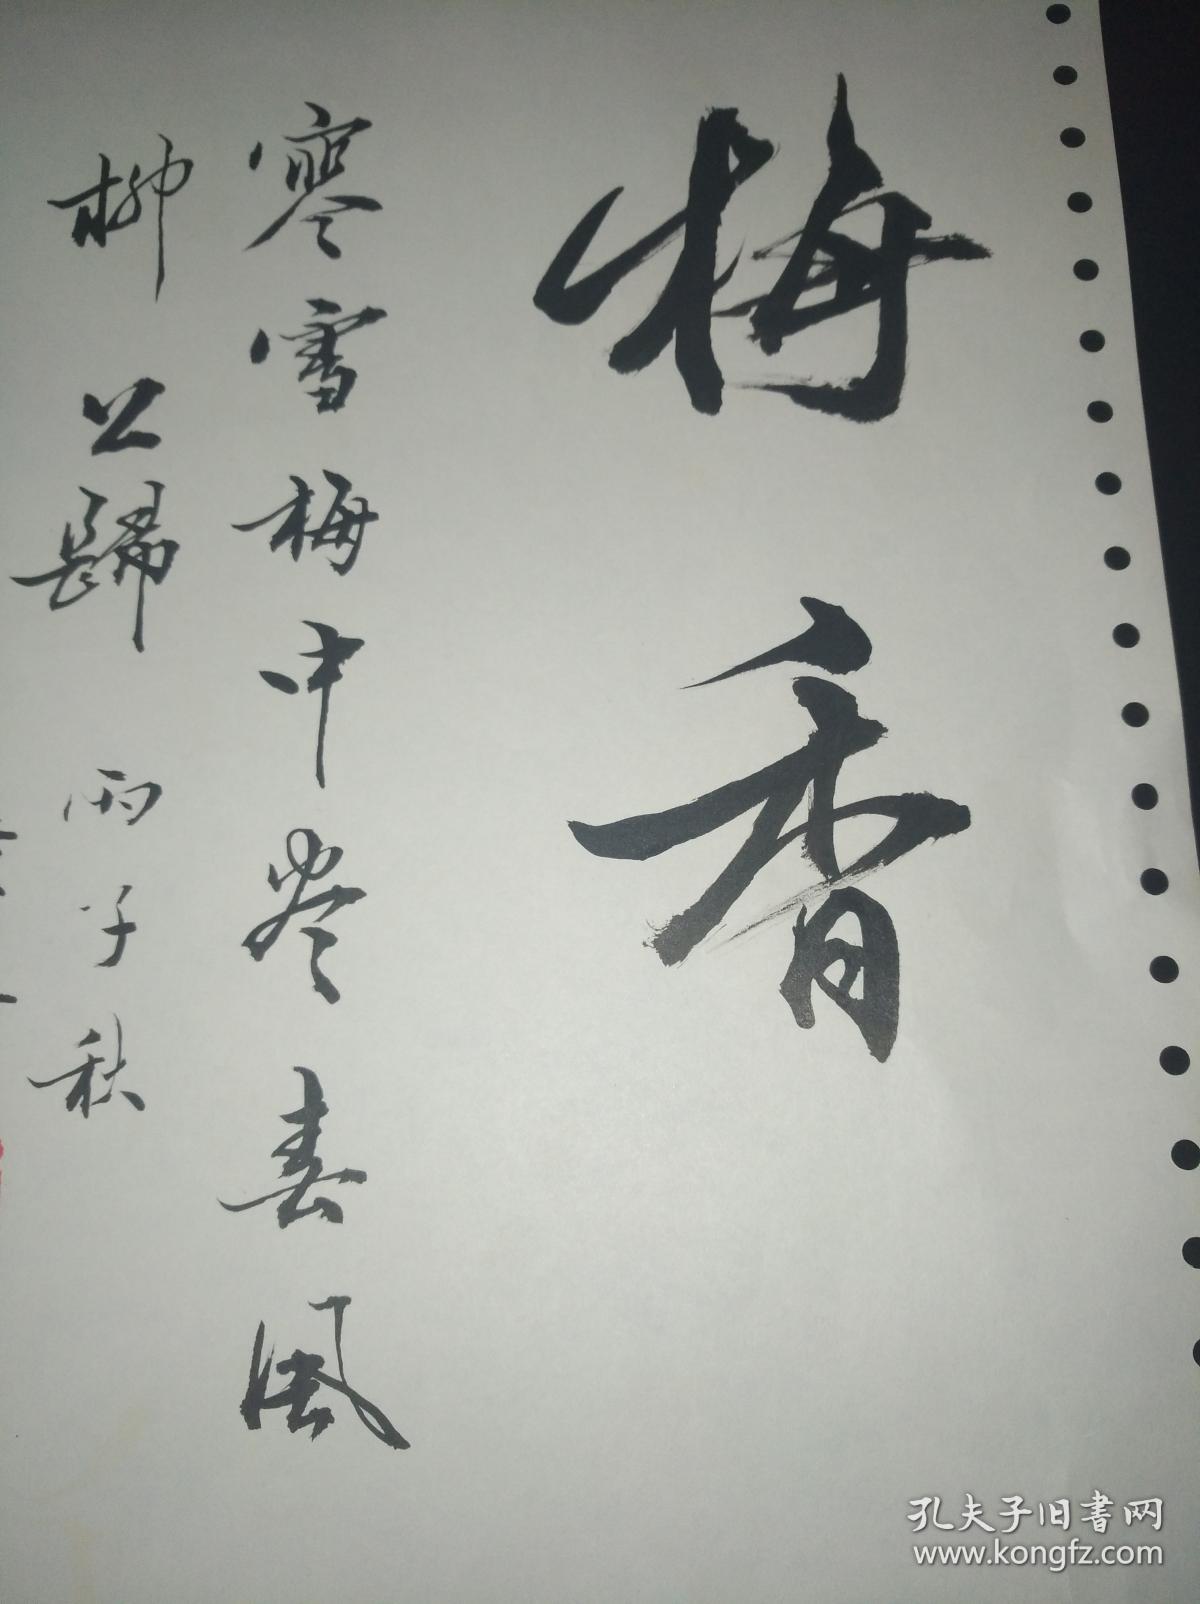 梅香
寒雪梅中尽春風
柳公歸 丙子秋
孔夫子旧书网
www.kongfz.com